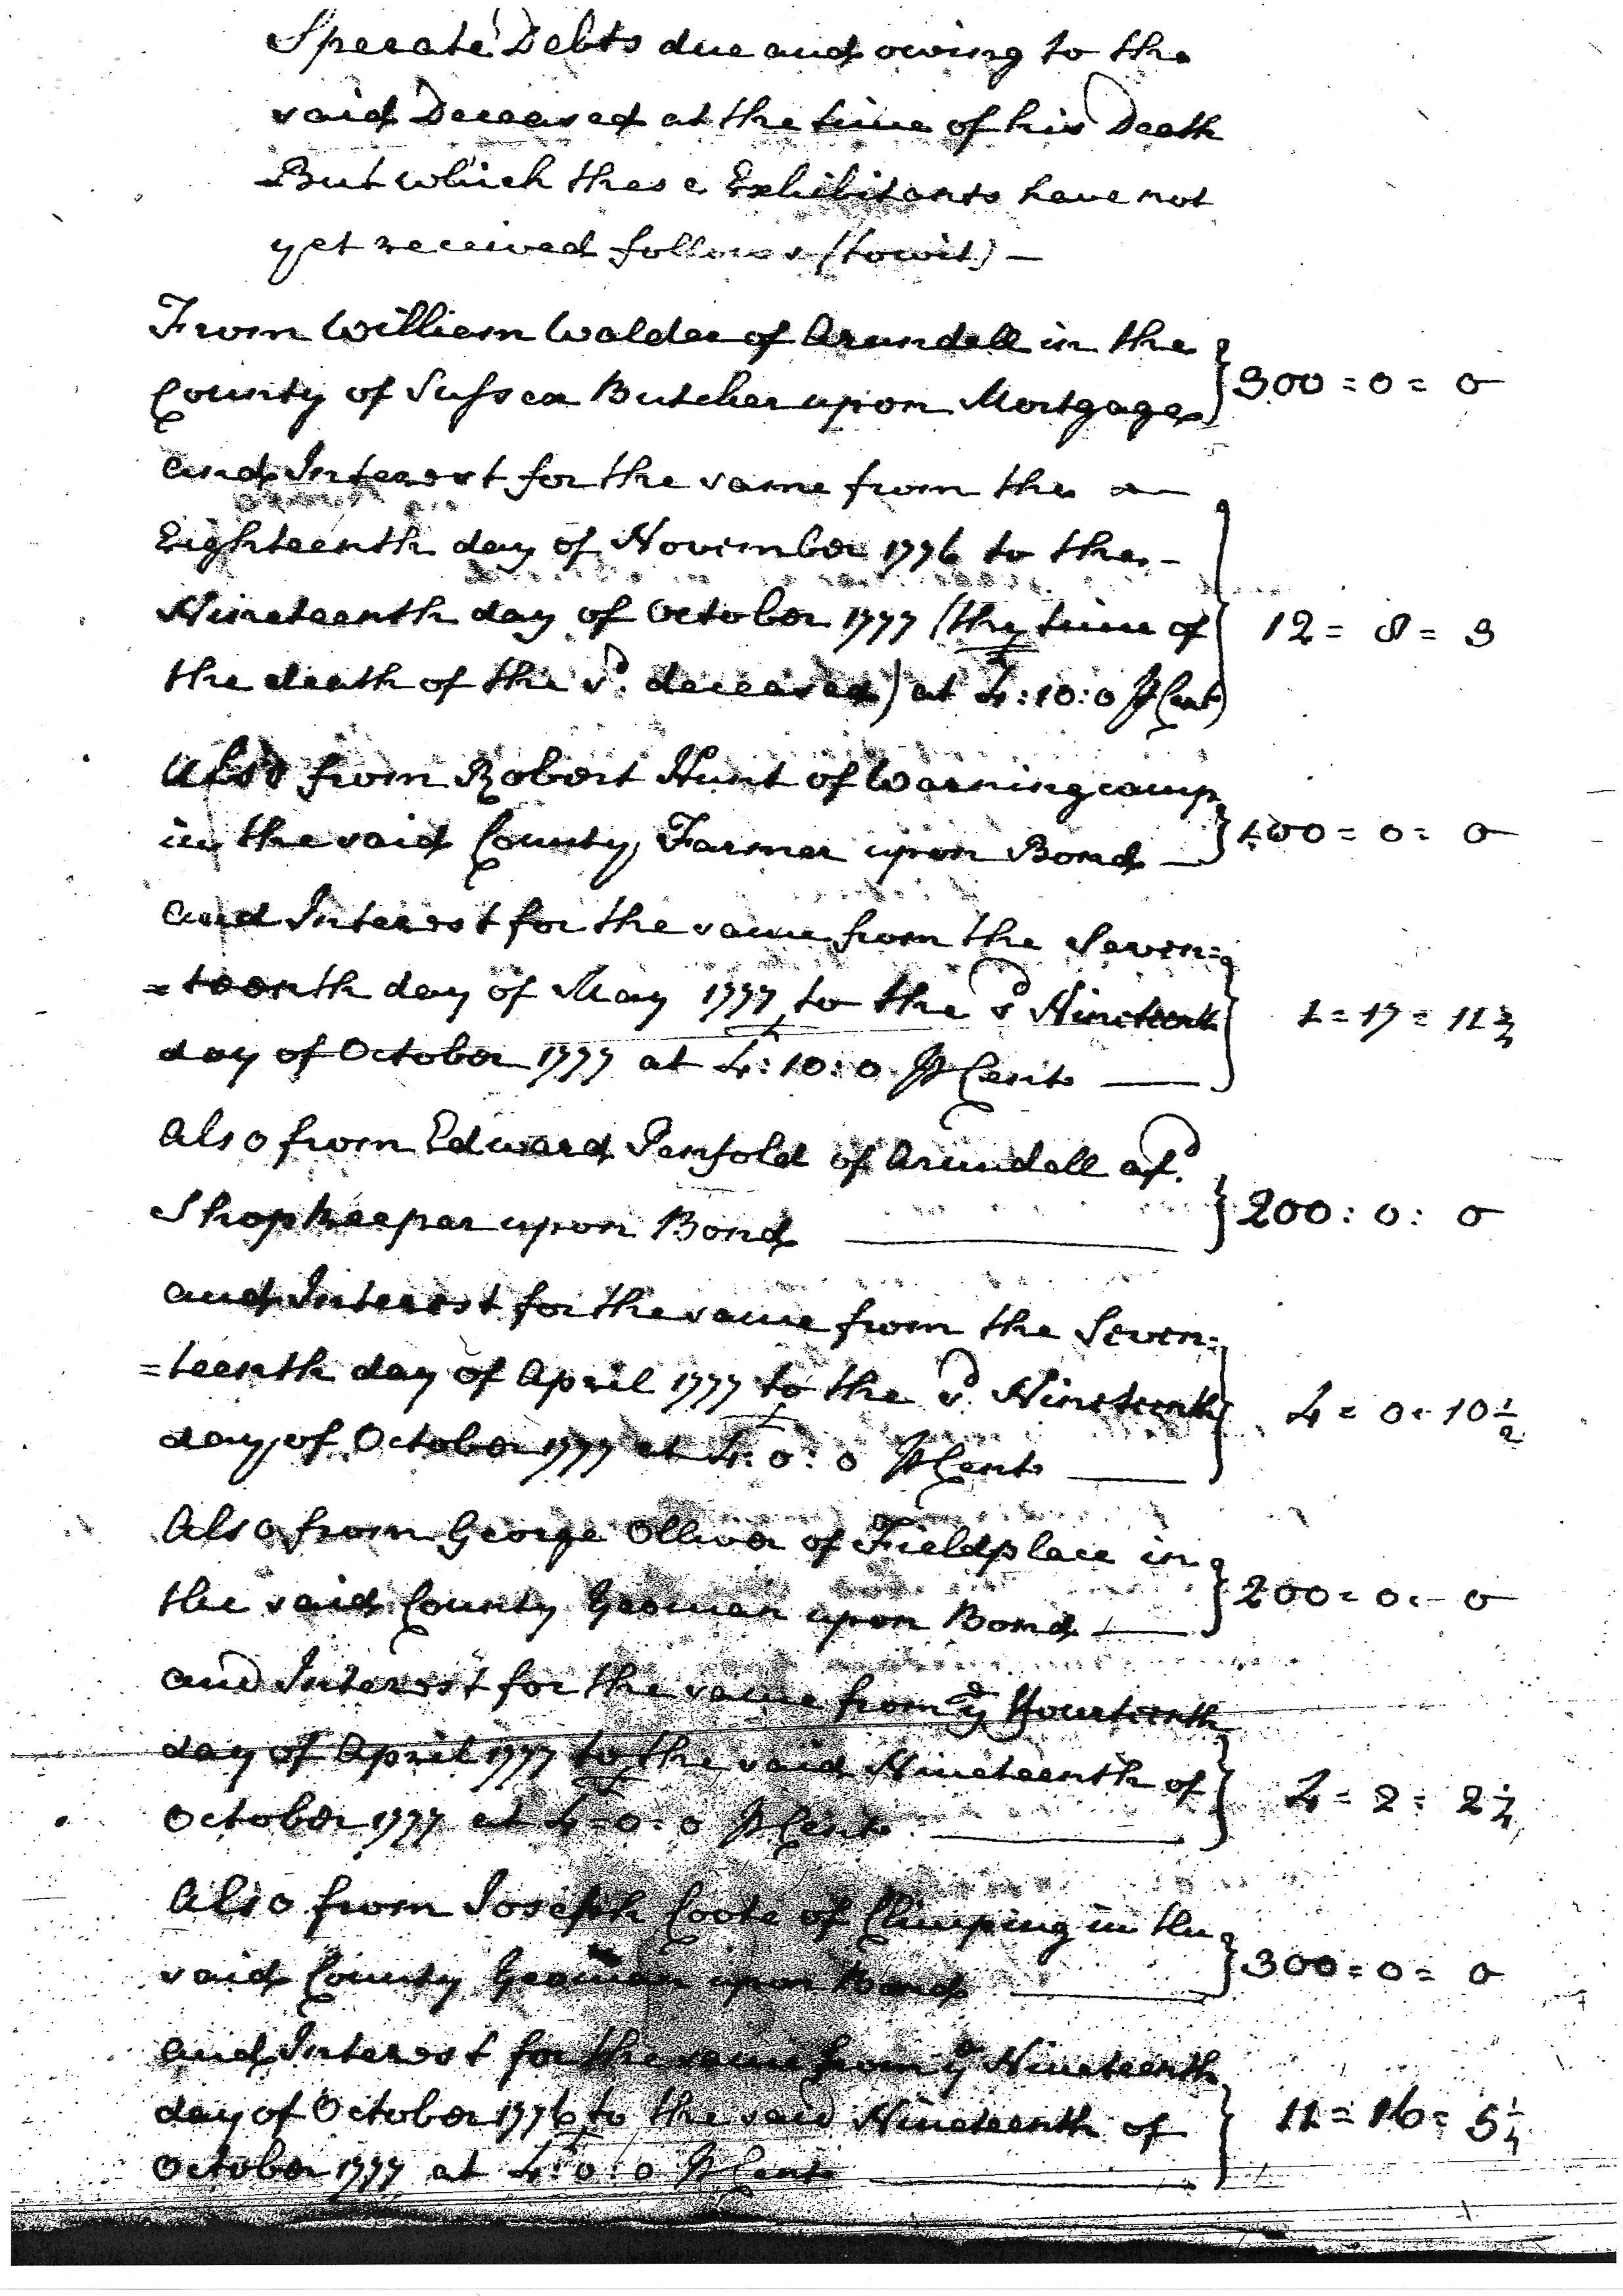 Sperate Debts due and owing to the
said Deceased at the time of his Death
But which these Exhibitants have not
yet received follows (towit) —
From William Walder of Arundell in the
County of Sussex Butcher upon Mortgage } 300 = 0 = 0
and Interest for the same from the —
Eighteenth day of November 1776 to the —
Nineteenth day of October 1777 (the time of } 12 = 8 = 3
the death of the sd. deceased) at £4:10:0 P Cent
Also from Robert Hunt of Warningcamp
in the said County, Farmer upon Bond — } 100 = 0 = 0
and Interest for the same from the Seven=
=teenth day of May 1777 to the sd Nineteenth } 1 = 17 = 11 3/4
day of October 1777 at £4:10:0 P Cent —
Also from Edward Penfold of Arundell afsd.
Shopkeeper upon Bond — } 200 : 0 : 0
and Interest for the same from the Seven=
=teenth day of April 1777 to the sd. Nineteenth } 4 = 0 = 10 1/2
day of October 1777 at £4:0:0 P Cent —
Also from George Olliver of Fieldplace in
the said County Yeoman upon Bond — } 200 = 0 = 0
and Interest for the same from ye Fourteenth
day of April 1777 to the said Nineteenth of } 4 = 2 = 2 1/4
October 1777 at £4=0:0 P Cent —
Also from Joseph Coote of Climping in the
said County Yeoman upon Bond — } 300 = 0 = 0
and Interest for the same from ye Nineteenth
day of October 1776 to the said Nineteenth of } 11 = 16 = 5 1/4
October 1777 at £4:0:0 P Cent —